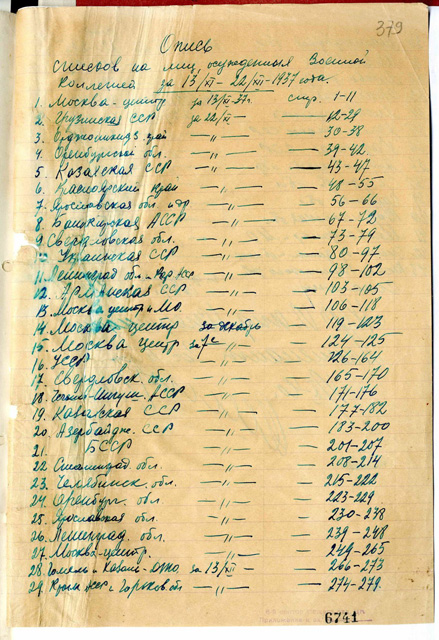 379
Опись
списков на лиц, осужденных Военной
Коллегией за 13/XI – 22/XII – 1937 года.
1. Москва – центр за 13/XI-37г. стр. 1-11
2. Грузинская ССР за 22/XI – — 12-28
3. Орджоникидз. край — „ — — 30-38
4. Оренбургской обл. — „ — — 39-42
5. Казахская ССР — „ — — 43-47
6. Красноярский край — „ — — 48-55
7. Ярославская обл — „ — — 56-66
8. Башкирская АССР — „ — — 67-72
9. Свердловская обл. — „ — — 73-79
Украинская ССР — „ — — 80-97
11. Ленинград обл — „ — — 98-102
12. Армянская ССР — „ — — 103-105
13. Москва центр и МО — „ — — 106-118
14. Москва – центр за декабрь — 119-123
15. Москва центр — 124-125
16. УССР — „ — — 126-164
17. Свердловск. обл. — „ — — 165-170
18. Чечено-Ингуш. АССР — „ — — 171-176
19. Казахская ССР — „ — — 177-182
20. Азербайдж. ССР — „ — — 183-200
21. БССР — „ — — 201-207
22. Сталинград обл. — „ — — 208-214
23. Челябинск. обл. — „ — — 215-222
24. Оренбург. обл — „ — — 223-229
25. Ярославская обл. — „ — — 230-238
26. Ленинград. обл. — „ — — 239-248
27. Москва-центр. — „ — — 249-265
28. за 13/XI — — 266-273
29. Крым АССР и Горьков обл — „ — — 274-279.
6741